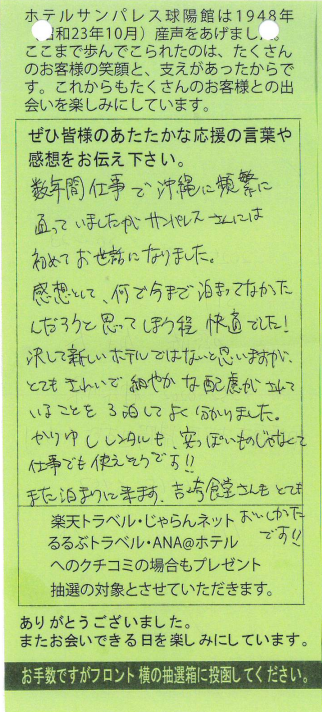 ホテルサンパレス球陽館は1948年
和23年10月）産声をあげまし
ここまで歩んでこられたのは、たくさん
のお客様の笑顔と、支えがあったからで
す。これからもたくさんのお客様との出
会いを楽しみにしています。
ぜひ皆様のあたたかな応援の言葉や
感想をお伝え下さい。
数年間仕事で沖縄に頻繁に
通っていましたがサンパレスさんには
初めてお世話になりました。
感想として、何で今まで泊まってなかった
んだろうと思ってしまう程 快適でした!
決して新しいホテルではないと思いますが、
とてもきれいで細やかな配慮がされて
いることを3泊してよく分かりました。
かりゆしレンタルも、安っぽいものじゃなくて
仕事でも使えそうです!!
また泊まりに来ます、吉崎食堂さんもとても
おいしかた
です!!
楽天トラベル・じゃらんネット
るるぶトラベル・ANA@ホテル
へのクチコミの場合もプレゼント
抽選の対象とさせていただきます。
ありがとうございました。
またお会いできる日を楽しみにしています。
お手数ですがフロント横の抽選箱に投函してください。